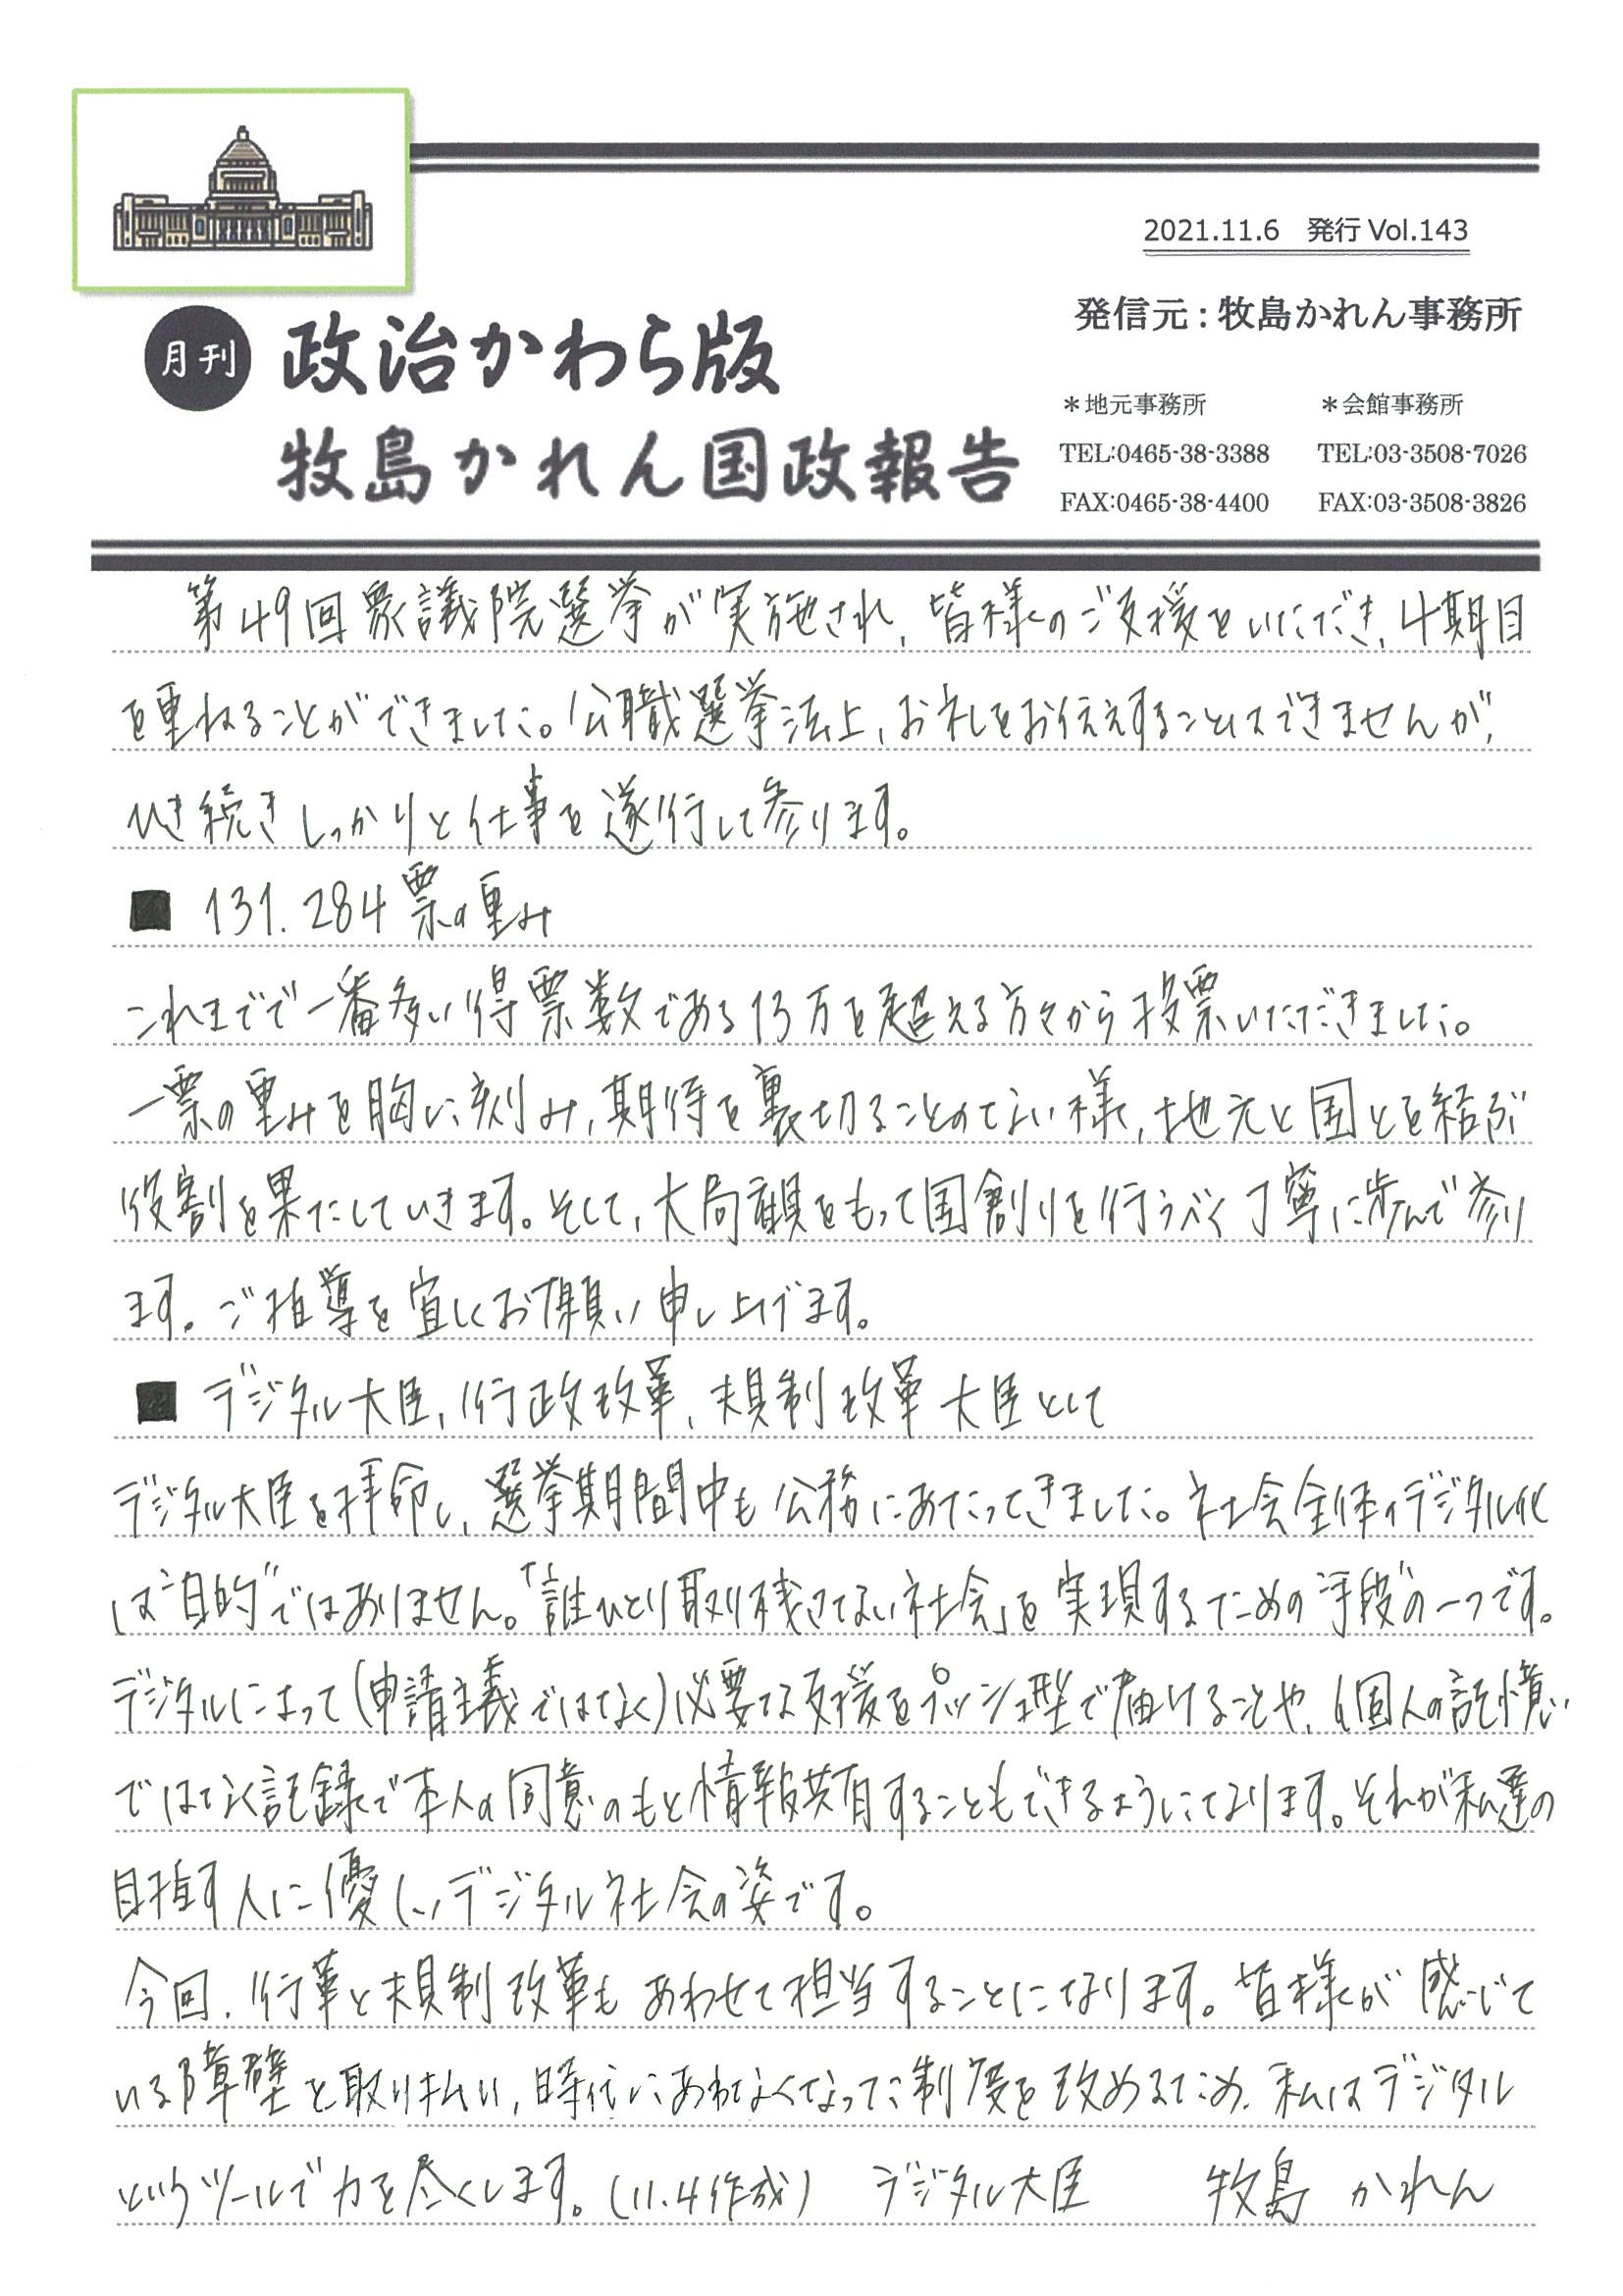 2021.11.6　発行 Vol.143
発信元：牧島かれん事務所
月刊 政治かわら版
牧島かれん国政報告
＊地元事務所　＊会館事務所
TEL:0465-38-3388　TEL:03-3508-7026
FAX:0465-38-4400　FAX:03-3508-3826
第49回衆議院選挙が実施され、皆様のご支援をいただき、4期目
を重ねることができました。公職選挙法上、お礼をお伝えすることはできませんが、
ひき続きしっかりと仕事を遂行して参ります。
■ 131.284票の重み
これまでで一番多い得票数である13万を超える方々から投票いただきました。
一票の重みを胸に刻み、期待を裏切ることのない様、地元と国とを結ぶ
役割を果たしていきます。そして、大局観をもって国創りを行うべく丁寧に歩んで参り
ます。ご指導を宜しくお願い申し上げます。
■ デジタル大臣、行政改革、規制改革大臣として
デジタル大臣を拝命し、選挙期間中も公務にあたってきました。社会全体のデジタル化
は“目的”ではありません。「誰ひとり取り残さない社会」を実現するための“手段”の一つです。
デジタルによって(申請主義ではなく)必要な支援をプッシュ型で届けることや、個人の記憶
ではなく記録で本人の同意のもと情報共有することもできるようになります。それが私達の
目指す人に優しいデジタル社会の姿です。
今回、行革と規制改革もあわせて担当することになります。皆様が感じて
いる障壁を取り払い、時代にあわなくなった制度を改めるため、私はデジタル
というツールで力を尽くします。(11.4作成)　デジタル大臣　牧島 かれん